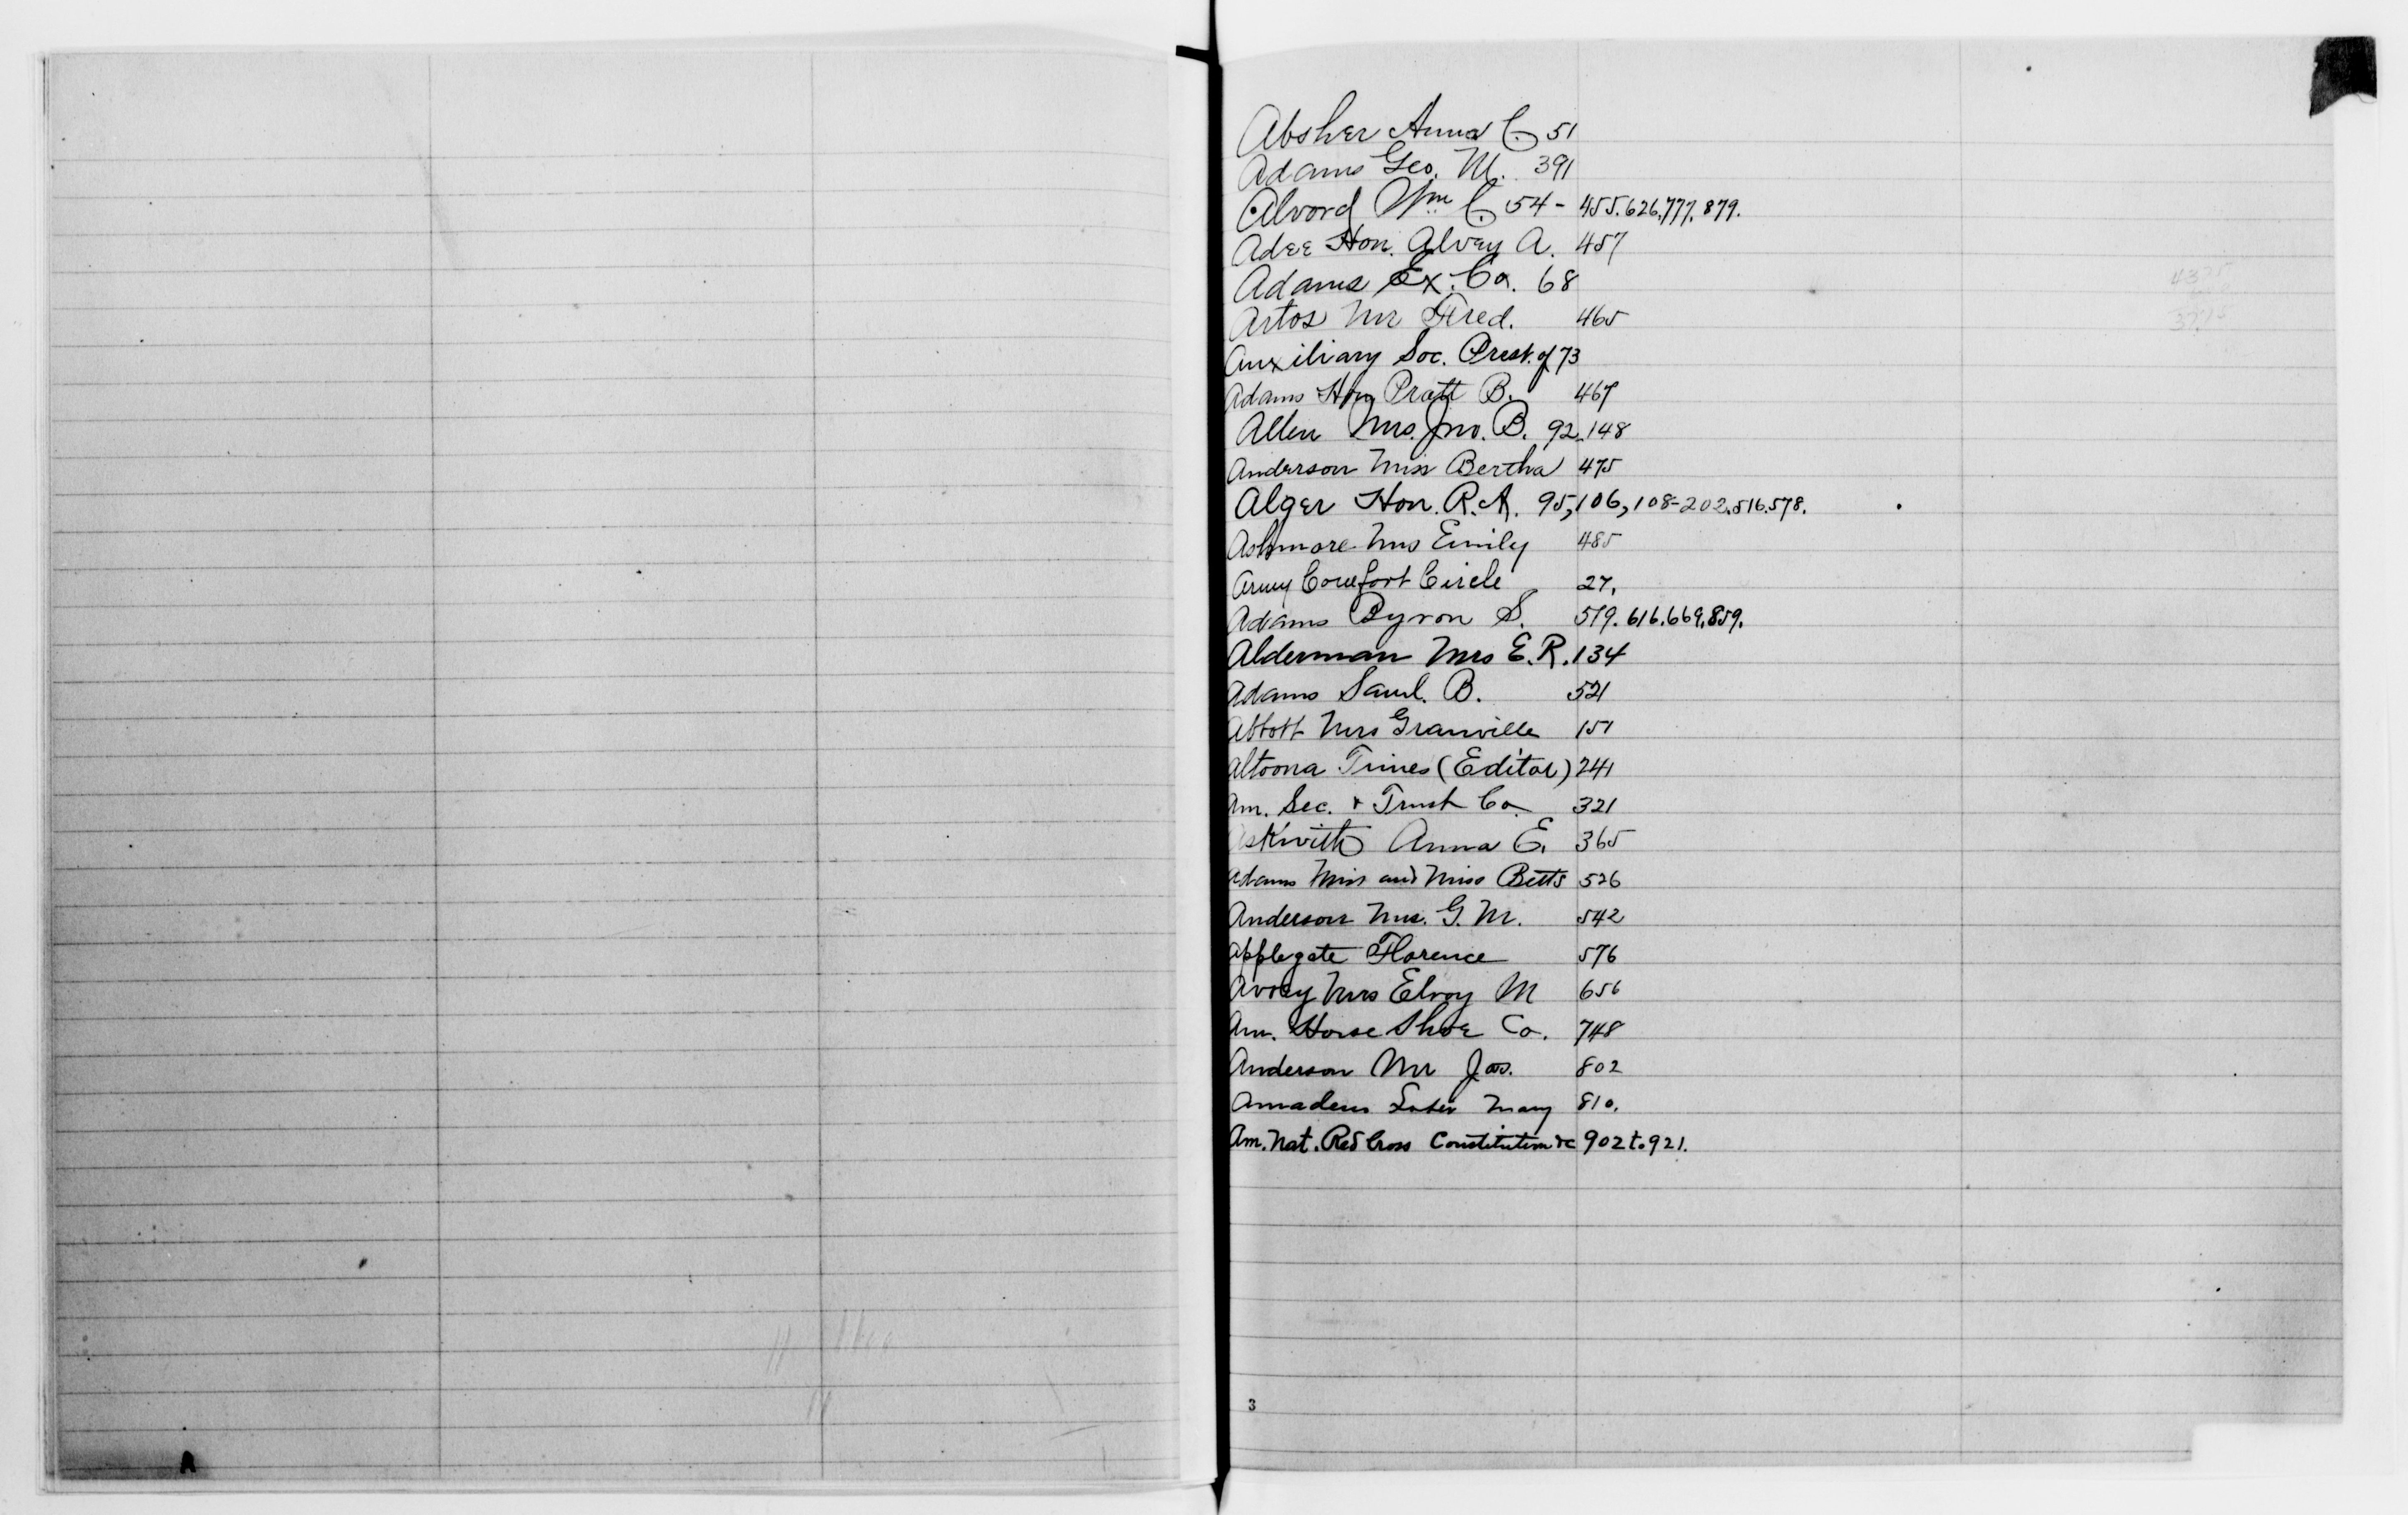 Absher Anna C. 51
Adams Geo. M. 391
Alvord Wm C. 54 - 455.626.777.879.
Adee Hon. Alvey A. 457
Adams Ex. Co. 68
Artos Mr Fred. 465
Auxiliary Soc. Prest. of 73
Adams Hon Pratt B. 467
Allen Mrs. Jno. B. 92-148
Anderson Miss Bertha 475
Alger Hon. R. A. 95, 106, 108-202.516.578.
Ashmore Mrs Emily 485
Army Comfort Circle 27.
Adams Byron S. 519. 616.669.859.
Alderman Mrs E. R. 134
Adams Saml. B. 521
Abbott Mrs Granville 151
Altoona Times (Editor) 241
Am. Sec. & Trust Co. 321
Askwith Anna E. 365
Adams Miss and Miss Betts 526
Anderson Mrs. G. M. 542
Applegate Florence 576
Avery Mrs Elroy M 656
Am. Horse Shoe Co. 748
Anderson Mr Jas. 802
Amadeus Sister Mary 810.
Am. Nat. Red Cross Constitution &c 902 to 921.
3
A